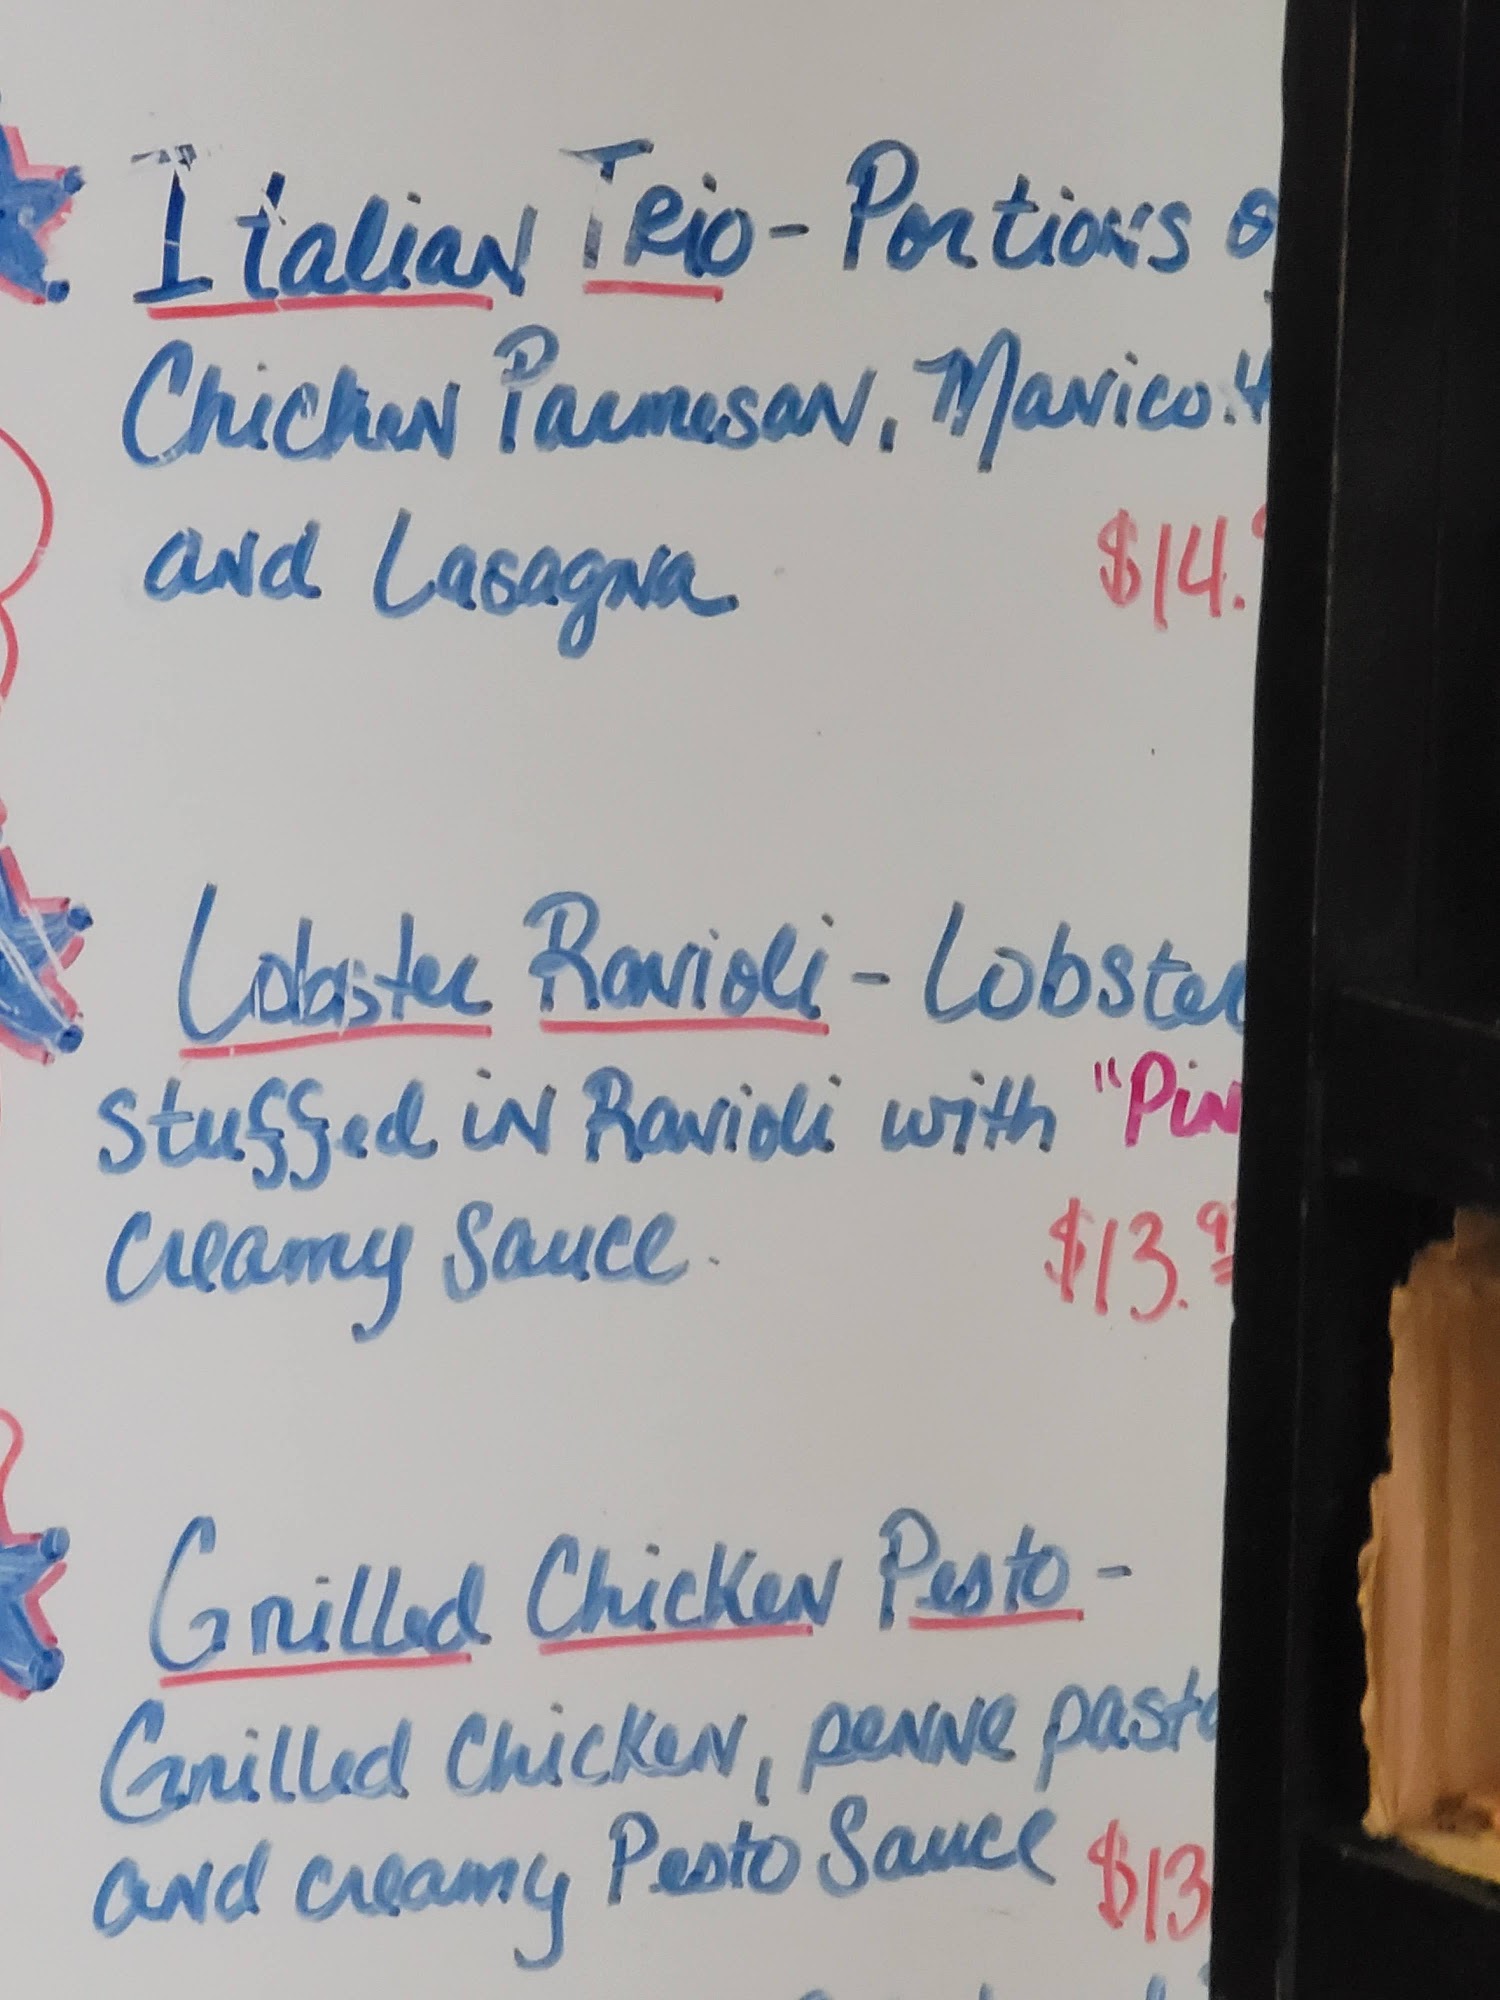 Italian Trio - Portions o
Chicken Parmesan, Manicott
and Lasagna
$14.
Lobster Ravioli - Lobster
stuffed in Ravioli with "Pin
creamy sauce.
$13.9
Grilled Chicken Pesto -
Grilled Chicken, penne pasta
and creamy Pesto Sauce $13